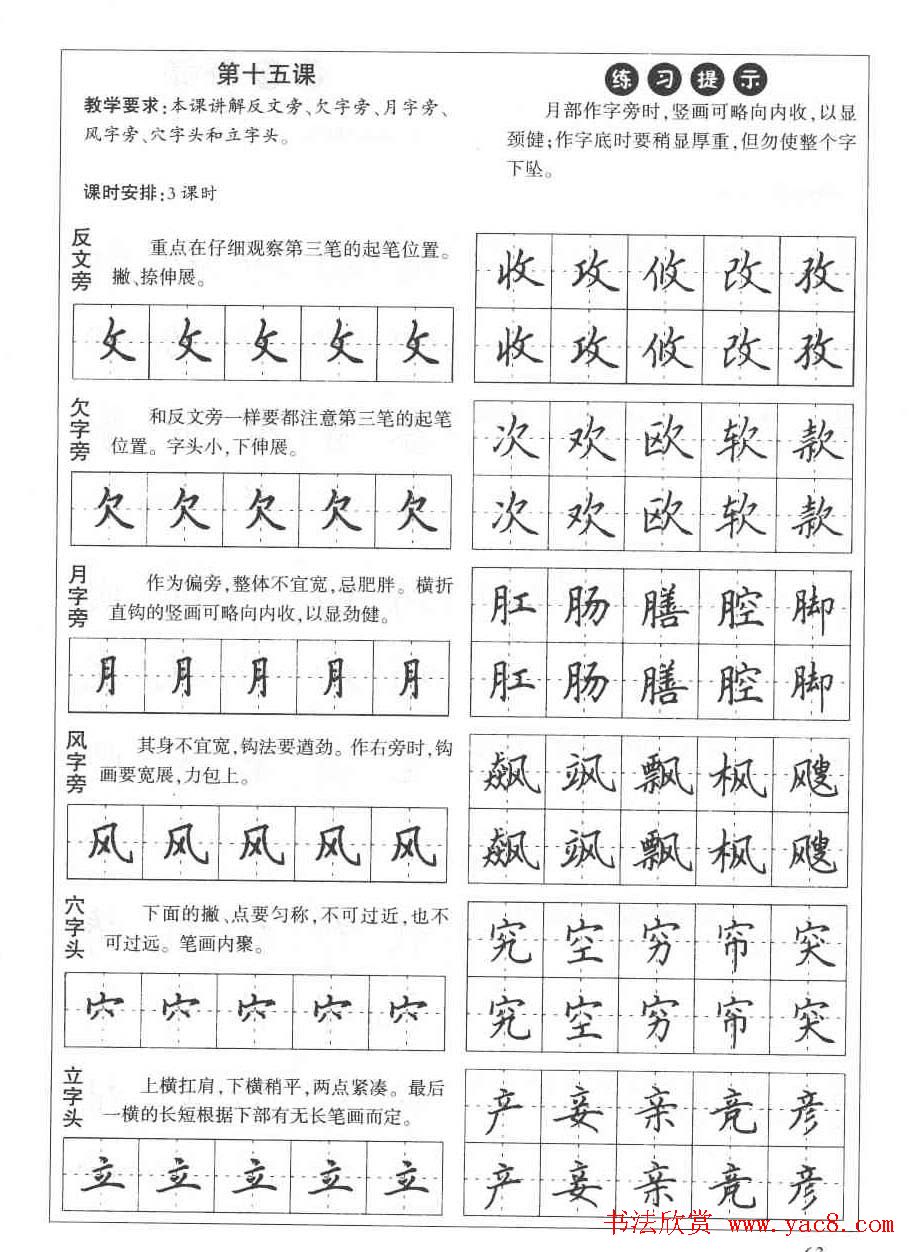 第十五课
教学要求:本课讲解反文旁、欠字旁、月字旁、
风字旁、穴字头和立字头。
课时安排:3课时
练习提示
月部作字旁时,竖画可略向内收,以显
颈健;作字底时要稍显厚重,但勿使整个字
下坠。
反文旁
重点在仔细观察第三笔的起笔位置。
撇、捺伸展。
攵攵攵攵攵
收攻攸改孜
收攻攸改孜
欠字旁
和反文旁一样要都注意第三笔的起笔
位置。字头小,下伸展。
欠欠欠欠欠
次欢欧软款
次欢欧软款
月字旁
作为偏旁,整体不宜宽,忌肥胖。横折
直钩的竖画可略向内收,以显劲健。
月月月月月
肛肠膳腔脚
肛肠膳腔脚
风字旁
其身不宜宽,钩法要遒劲。作右旁时,钩
画要宽展,力包上。
风风风风风
飙飒飘枫飕
飙飒飘枫飕
穴字头
下面的撇、点要匀称,不可过近,也不
可过远。笔画内聚。
穴穴穴穴穴
究空穷帘突
究空穷帘突
立字头
上横扛肩,下横稍平,两点紧凑。最后
一横的长短根据下部有无长笔画而定。
立立立立立
产妾亲竞彦
产妾亲竟彦
书法欣赏 www.yac8.com